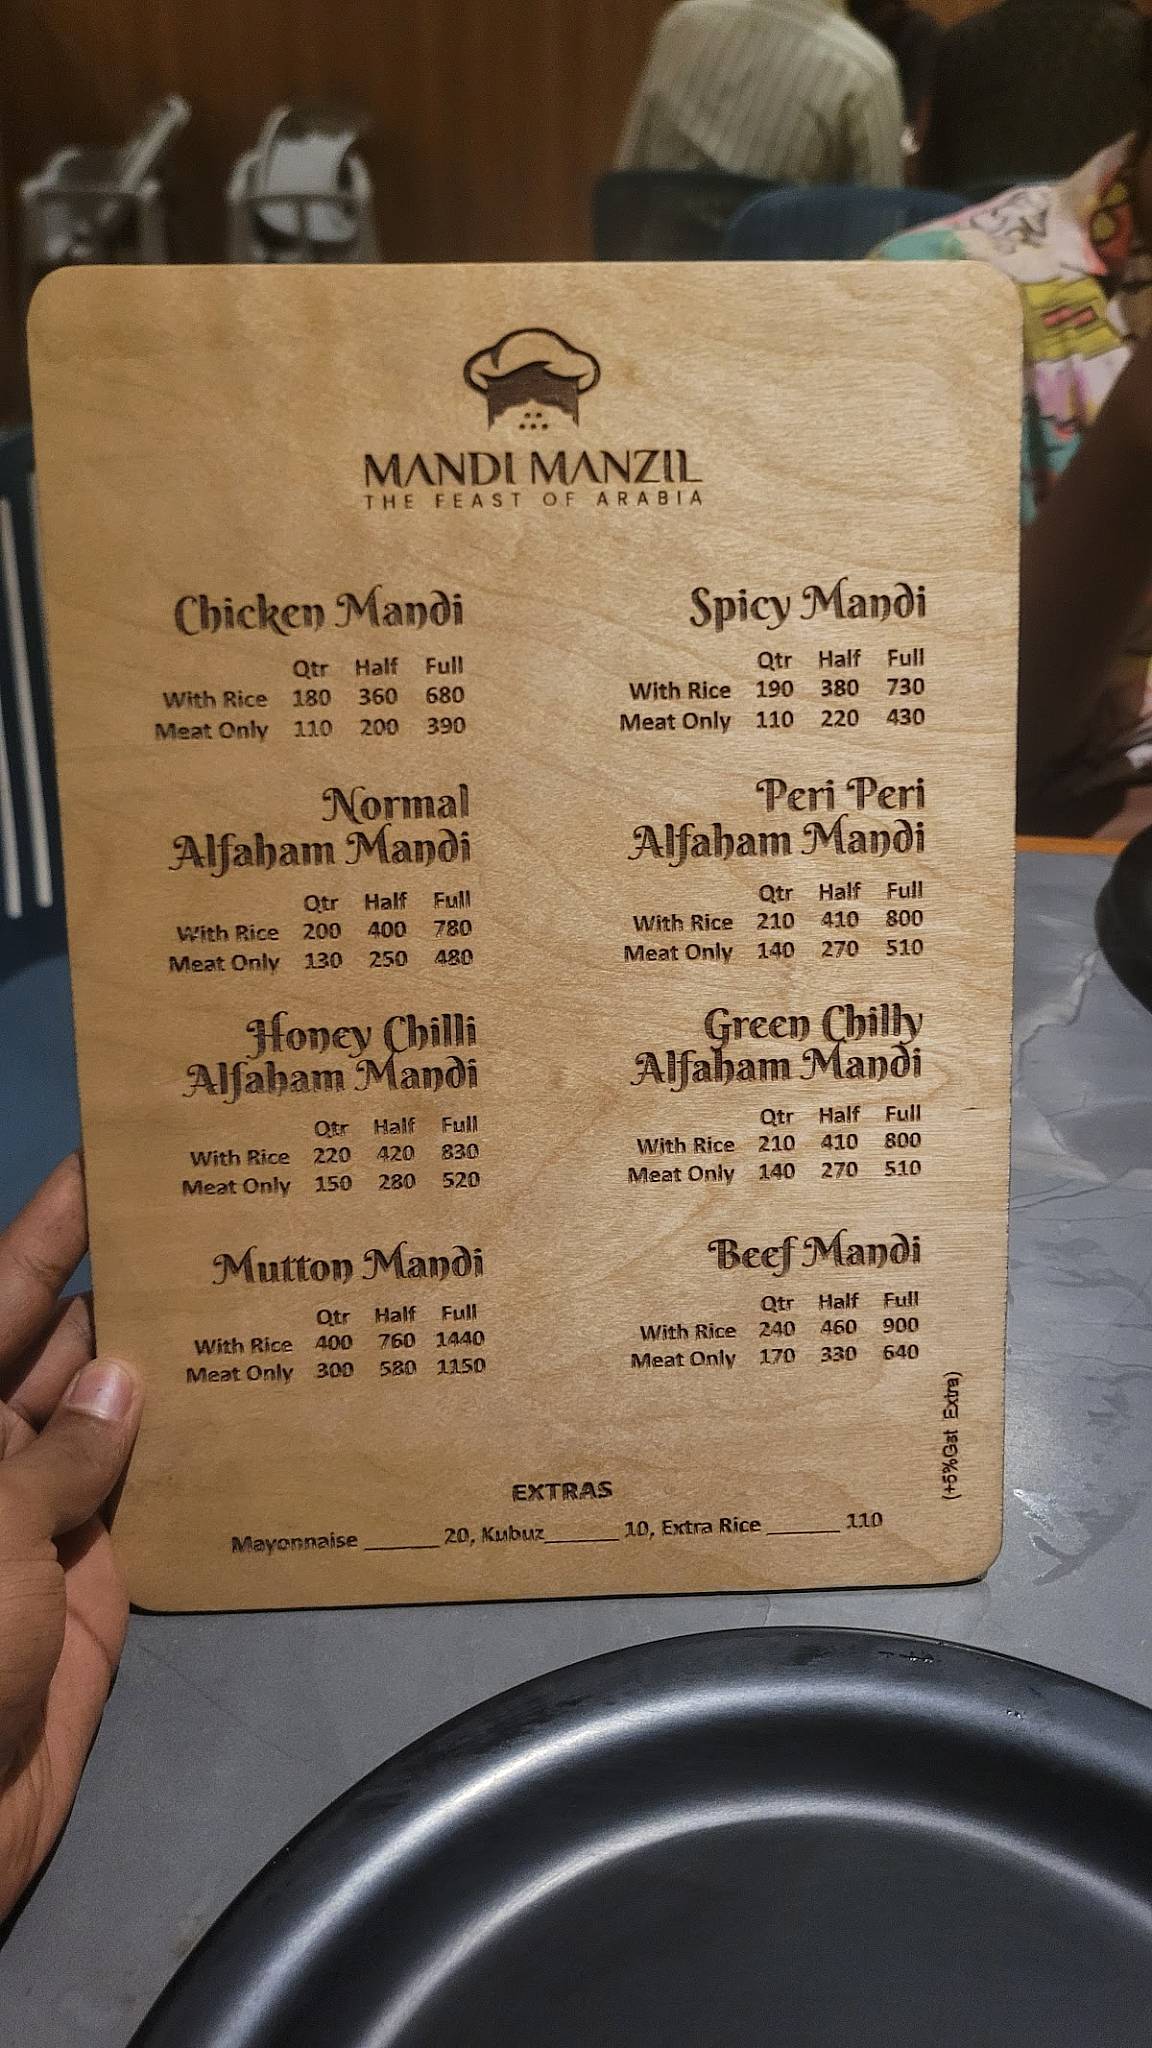 MANDI MANZIL
THE FEAST OF ARABIA
Chicken Mandi
Qtr Half Full
With Rice 180 360 680
Meat Only 110 200 390
Spicy Mandi
Qtr Half Full
With Rice 190 380 730
Meat Only 110 220 430
Normal
Alfaham Mandi
Qtr Half Full
With Rice 200 400 780
Meat Only 130 250 480
Peri Peri
Alfaham Mandi
Qtr Half Full
With Rice 210 410 800
Meat Only 140 270 510
Honey Chilli
Alfaham Mandi
Qtr Half Full
With Rice 220 420 830
Meat Only 150 280 520
Green Chilly
Alfaham Mandi
Qtr Half Full
With Rice 210 410 800
Meat Only 140 270 510
Mutton Mandi
Qtr Half Full
With Rice 400 760 1440
Meat Only 300 580 1150
Beef Mandi
Qtr Half Full
With Rice 240 460 900
Meat Only 170 330 640
(+5%Gst Extra)
EXTRAS
Mayonnaise ______ 20, Kubuz______ 10, Extra Rice ______ 110